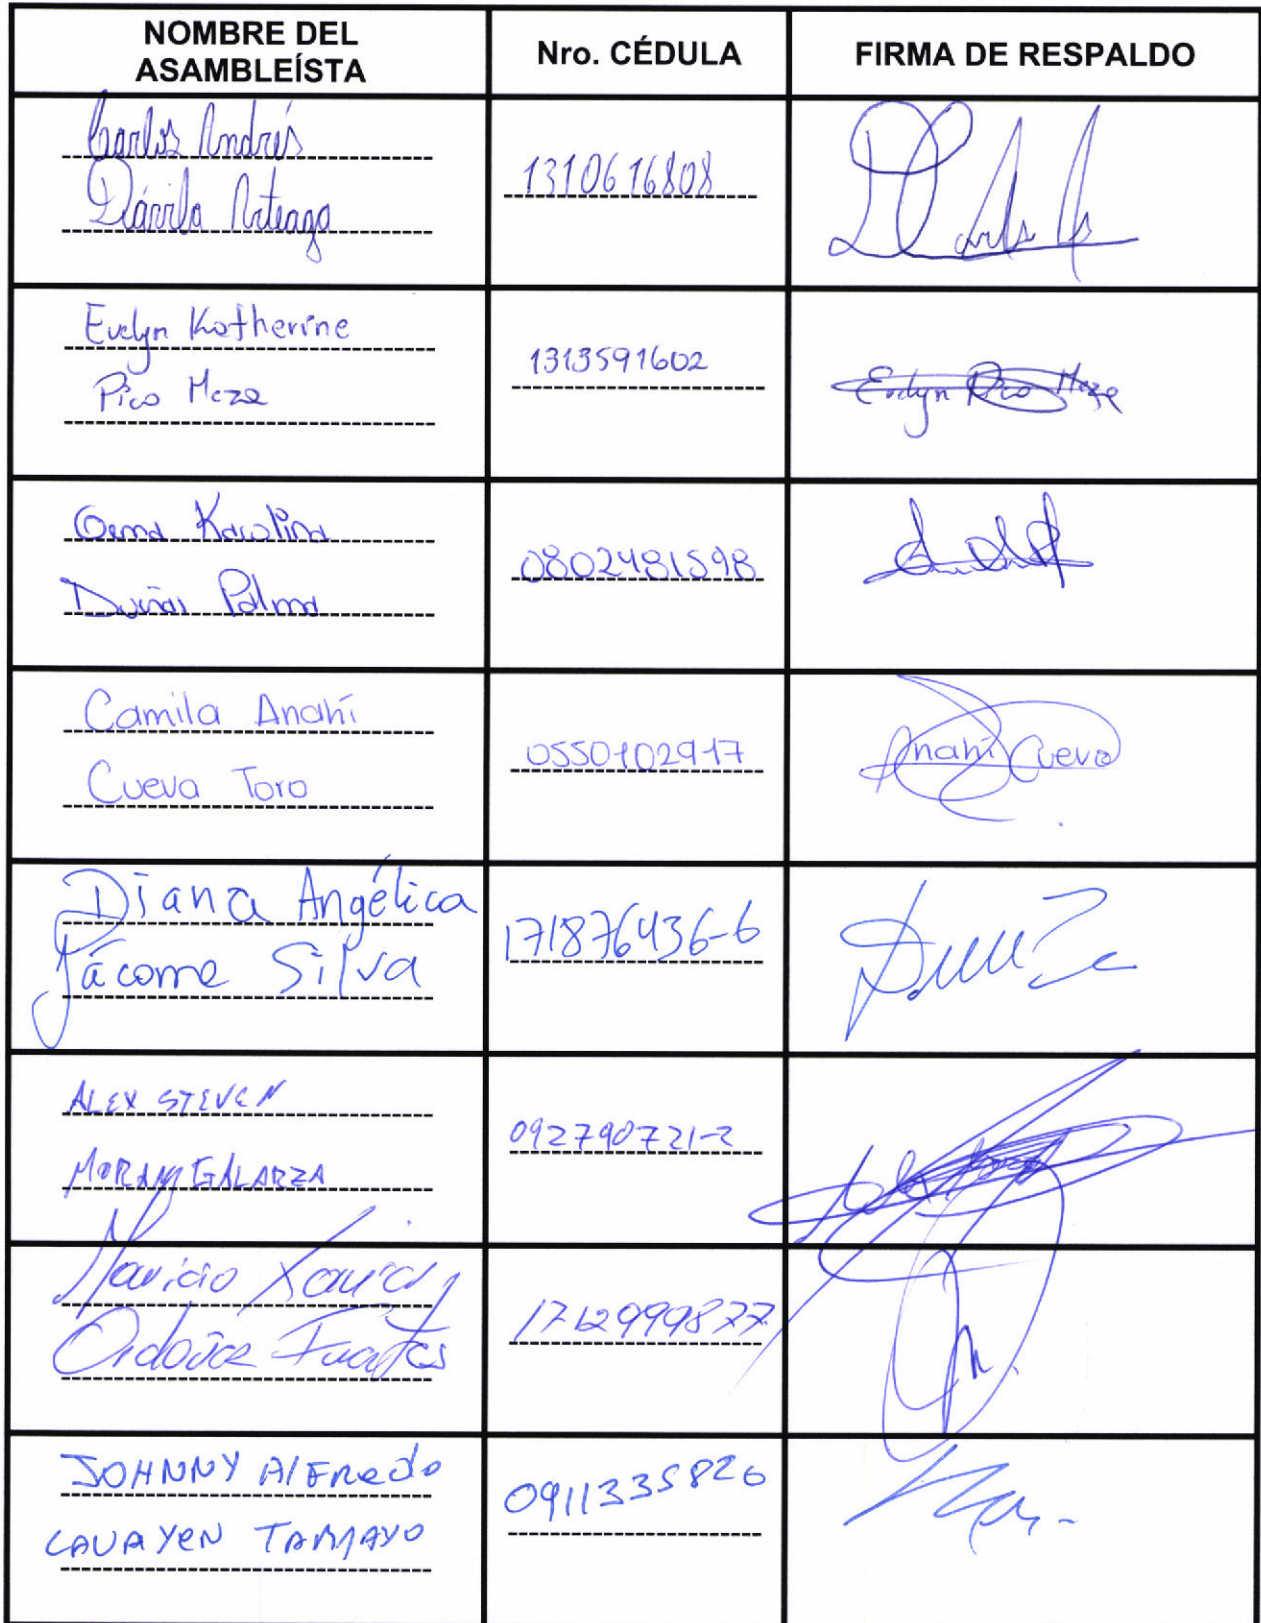 NOMBRE DEL
ASAMBLEÍSTA
Nro. CÉDULA
FIRMA DE RESPALDO
Carlos Andrés
Dávila Arteaga
1310616808
Evelyn Katherine
Pico Meza
1313591602
Evelyn Pico Meza
Gema Karolina
Dueñas Palma
0802481598
Camila Anahí
Cueva Toro
0550102917
Anahí Cueva
Diana Angélica
Jácome Silva
171876436-6
ALEX STEVEN
MORAN GALARZA
092790721-2
Mauricio Xavier
Ordoñez Fuentes
1712999877
JOHNNY AlFRedo
LAVAYEN TAMAYO
0911335826